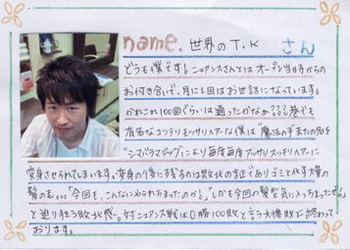 name. 世界のT.K さん
どうも僕です。ニュアンスさんとはオープン当日からの
お付き合いで、月に1回はお世話になっています。
かれこれ100回ぐらいは通ったかなぁ???夢でも
有名なコッテリモッサリヘアーな僕は"魔法の手またの名を
"シマバラマジック"により毎度毎度アッサリスッキリヘアーに
変身させられてしまいます。変身の後に残るのは敗北の証でありゴミと化す大量の
髪の毛。。。「今回も、こんなにやられちまったのか?」「しかも今回の髪型気に入っちまったぜ?」
と迫り狂う敗北感。対ニュアンス戦は0勝100敗と言う大惨敗で終わって
おります。